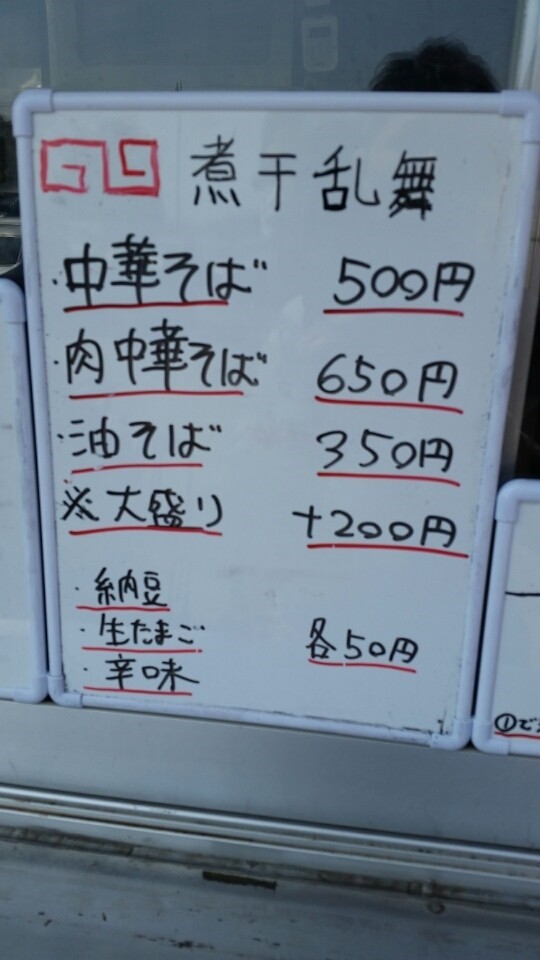 煮干乱舞
・中華そば 500円
・肉中華そば 650円
・油そば 350円
※大盛り +200円
・納豆
・生たまご 各50円
・辛味
①で